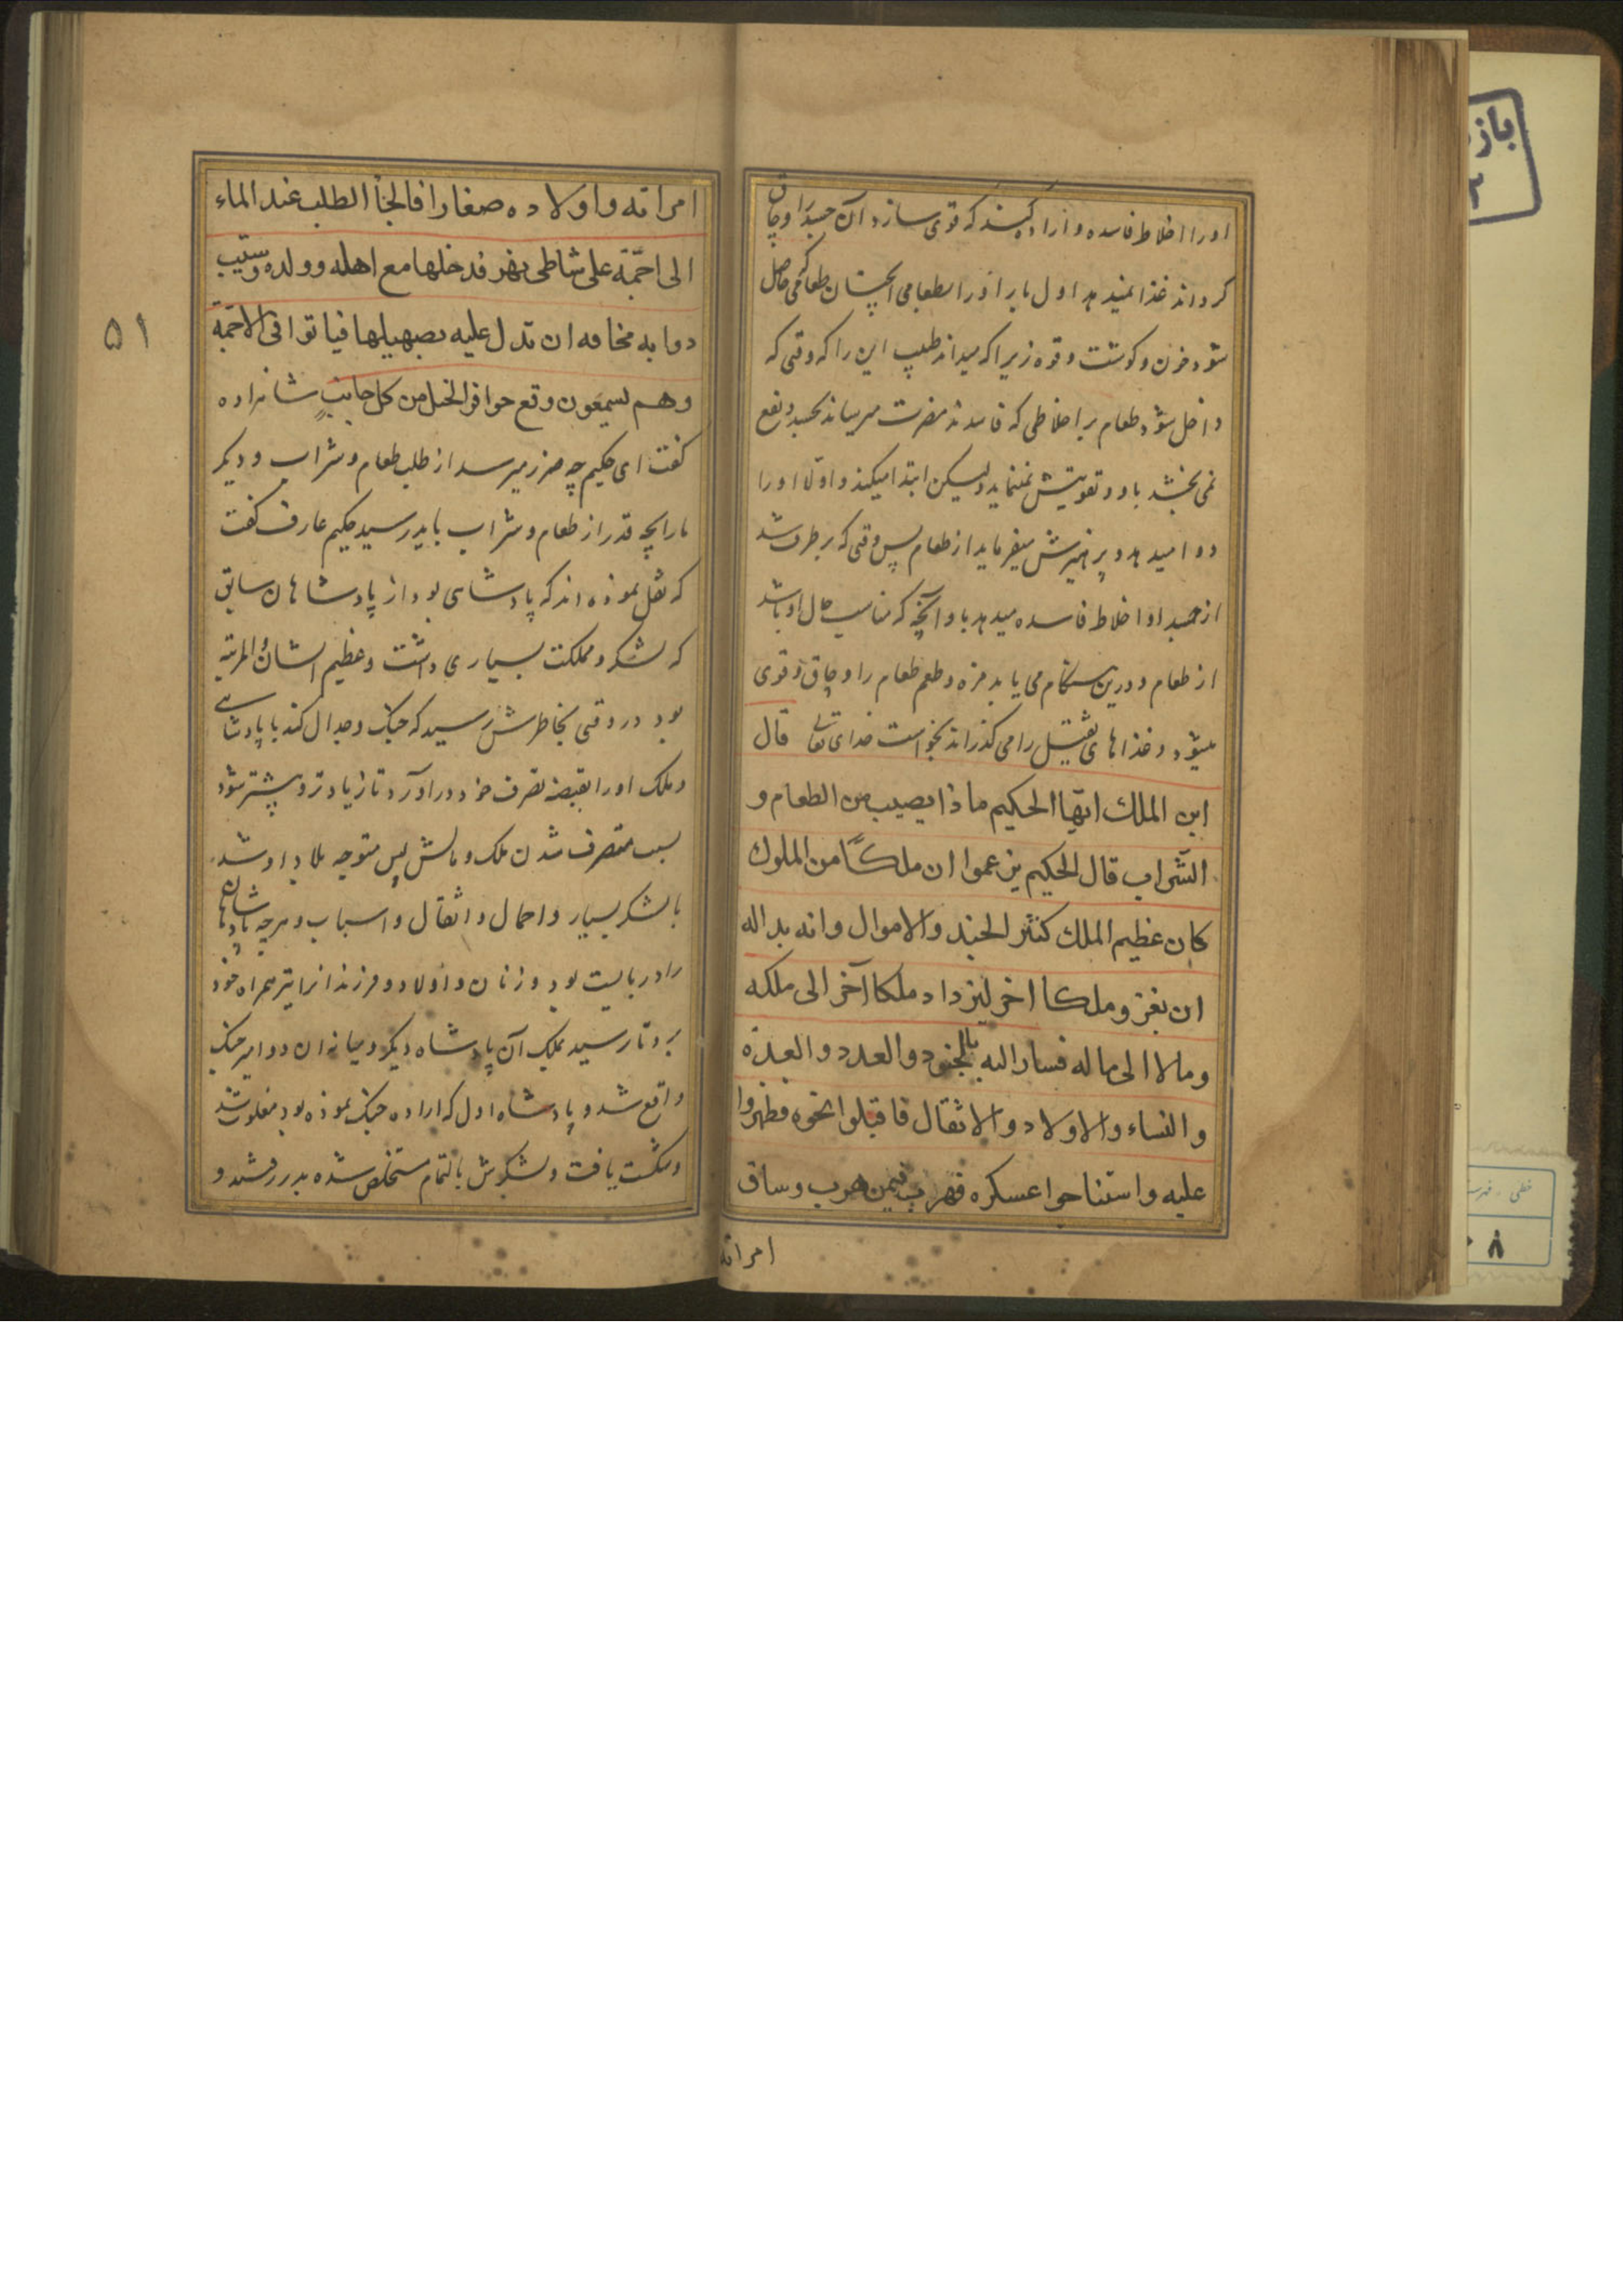 اورا اخلاط فاسده و اراده کند که قوی سازد آن جسد را و چاق
کرداند غذا نمیدهد اول بار اورا بطعامی آنچنان طعامی که حاصل
شود خون و کوشت و قوه زیرا که میداند طبیب این را که وقتی که
داخل شود طعام بر اخلاطی که فاسدند مضرت میرساند بجسد و نفع
نمی بخشد باو و تقویتش نمینماید ولیکن ابتدا میکند و اولا اورا
دوا میدهد و پرهیزش میفرماید از طعام پس وقتی که برطرف شد
از جسد او اخلاط فاسده میدهد باو آنچه که مناسب حال او باشد
از طعام و درین هنکام می یابد مزه و طعم طعام را و چاق و قوی
میشود و غذاهای ثقیل را می کذراند بخواست خدای تعالی قال
ابن الملک ایّها الحکیم ماذا یصیب من الطعام و
الشّراب قال الحکیم یزعموا ان ملکًا من الملوک
کان عظیم الملک کثیر الجند والاموال وانه بدا له
ان یغزو ملکا اخر لیزداد ملکا آخر الی ملکه
ومالا الی ماله فسار الیه بالجنود والعدد والعدّه
والنساء والاولاد والاثقال فاقبلوا نحوه فظهروا
علیه واستناحوا عسکره فهرب فیمن هرب وساق
امراته
۵۱
امراته واولاده صغارا فالجٲ الطلب عند الماء
الی اجمّة علی شاطی نهر فدخلها مع اهله وولده وسیّب
دوابه مخافه ان تدل علیه بصهیلها فباتوا فی الاجمّة
وهم لسیمعون وقع حوافر الخیل من کل جانبٍ شاهزاده
کفت ای حکیم چه ضرر میرسد از طلب طعام و شراب و دیکر
مارا بچه قدر از طعام و شراب باید رسید حکیم عارف کفت
که نقل نموده اند که پادشاهی بود از پادشاهان سابق
که لشکر و مملکت بسیاری داشت و عظیم الشان والمرتبه
بود در وقتی بخاطرش رسید که جنک و جدال کند با پادشاهی
و ملک اورا بقبضه تصرف خود در اورد تا زیادتر و بیشتر شود
بسبب متصرف شدن ملک و مالش پس متوجه بلاد او شد
با لشکر بسیار و احمال و اثقال و اسباب و هرچه پادشاهان
را دربایست بود و زنان و اولاد و فرزندانرا نیز همراه خود
برد تا رسید بملک آن پادشاه دیکر و میانه ان دو امیر جنک
واقع شد و پادشاه اول که اراده جنک نموده بود مغلوب شد
و شکست یافت و لشکرش بالتمام مستخلص شده بدر رفتند و
۸